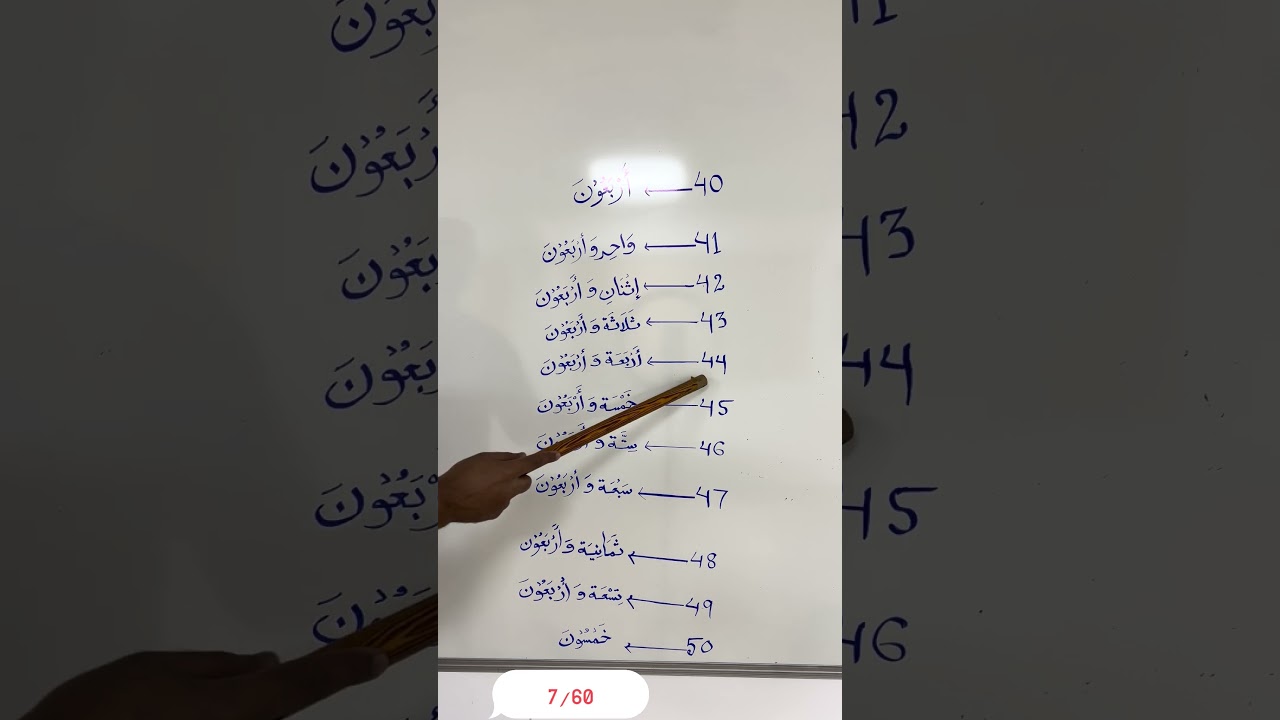 40 ← أَرْبَعُوْنَ
41 ← وَاحِد وَ أَرْبَعُوْنَ
42 ← إِثْنَانِ وَ أَرْبَعُوْنَ
43 ← ثَلَاثَة وَ أَرْبَعُوْنَ
44 ← أَرْبَعَة وَ أَرْبَعُوْنَ
45 ← خَمْسَة وَ أَرْبَعُوْنَ
46 ← سِتَّة وَ
47 ← سَبْعَة وَ أَرْبَعُوْنَ
48 ← ثَمَانِيَة وَ أَرْبَعُوْن
49 ← تِسْعَة وَ أَرْبَعُوْنَ
50 ← خَمْسُوْنَ
7/60